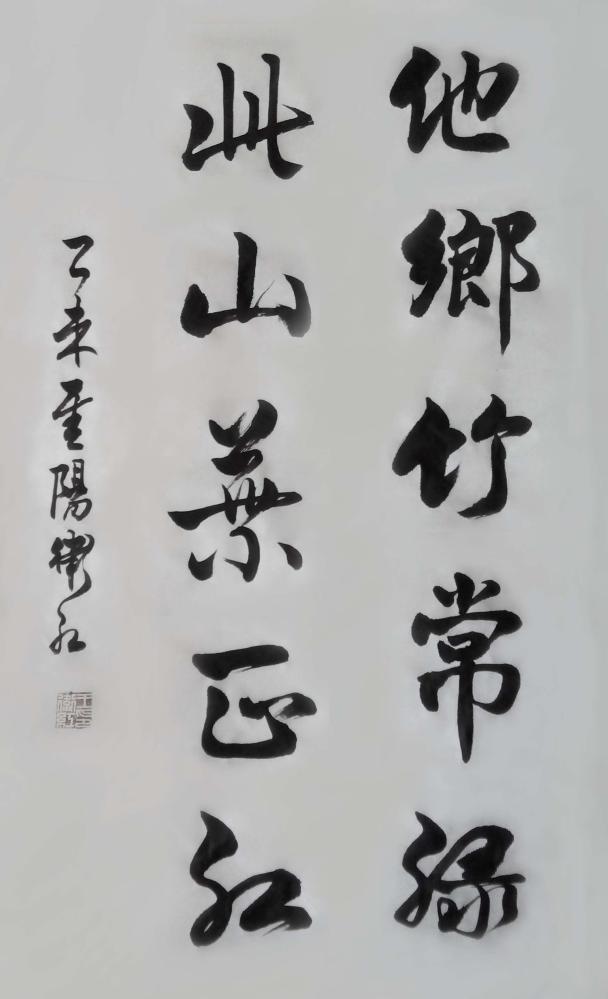 他鄉竹常綠
此山葉正紅
乙未重陽衛紅